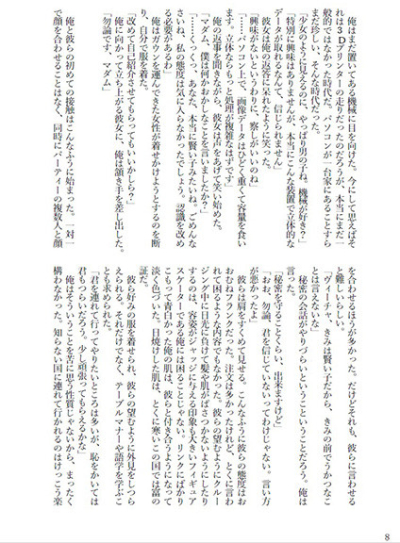 俺はまだ置いてある機械に目を向けた。今にして思えばそ
れは3Dプリンターの走りだったのだろうが、本当にまだ一
般的ではなかった時代だ。パソコンが一台家にあることすら
珍しい、そんな時代だった。
「あのように見えるのに、やっぱり男の子ね。機械が好き？」
「特別に興味はありませんが、本当にこんな装置で立体的な
データが取れるなんて、信じられません」
彼女は俺の返答に呆れたように笑った。
「興味がないというわりに、察しがいいのね」
「パソコン上で、画像データはひどく重くて容量を食い
ます。立体ならもっと処理が複雑なはずです」
俺の返事を聞きながら、彼女は声をあげて笑い始めた。
「マダム、僕は何かおかしなことを言いましたか？」
「……くっくっ、あなた、本当に賢いみたいね。ごめんな
さいね、私の態度は気に入らなかったでしょう。認識を改め
る必要があるわ」
彼はガウンを運んできた女性が着せかけようとするのを断
り、自分で服を着た。
「改めて自己紹介させてもらってもいいかしら？」
俺に向かって立ち上がる彼女に、俺は頷き手を差し出した。
「勿論です、マダム」
俺と彼らの初めての接触はこんなふうに始まった。一対一
で顔を合わせることはなく、同時にパーティーの複数人と顔
を合わせるほうが多かった。だけどそれも、彼らに言わせる
と難しいらしい。
「ヴィーチャ、きみは賢い子だから、きみの前でうかつなこ
とは言えないな」
秘密の会話がやりづらいということということだろう。俺は
言った。
「秘密を守ることくらい、出来ますけど」
「おお、勿論、君を信じていないってわけじゃない。言い方
が悪かったよ」
彼らは肩をすくめて見せる。こんなふうに彼らの態度はお
おむねフランクだった。注文は多かったけれど、とくに言わ
れて困るような内容でもなかった。彼らの望むようにクルー
ジング中に日光に負けて髪や肌がぱさつかないようにしたり
するのは、容姿がジャッジに与える印象も大きいフィギュア
スケーターである俺には困ることじゃない。リンクにばかり
こもって青白かった俺の肌は、彼らと付き合うようになって
淡く色づいた。日焼けした肌は、とくに寒いこの国では富の
証だ。
彼ら好みの服を着せられ、彼らの望むように外見をしつら
えられる。それだけでなく、テーブルマナーや語学を学ぶこ
とも求められた。
「君を連れて行ってやりたいところは多いが、恥をかいては
君もつらいだろう。少し頑張ってもらえるかな」
俺はそういうことを苦に思う性質じゃないから、まったく
構わなかった。知らない国に連れて行かれるのはけっこう楽
8